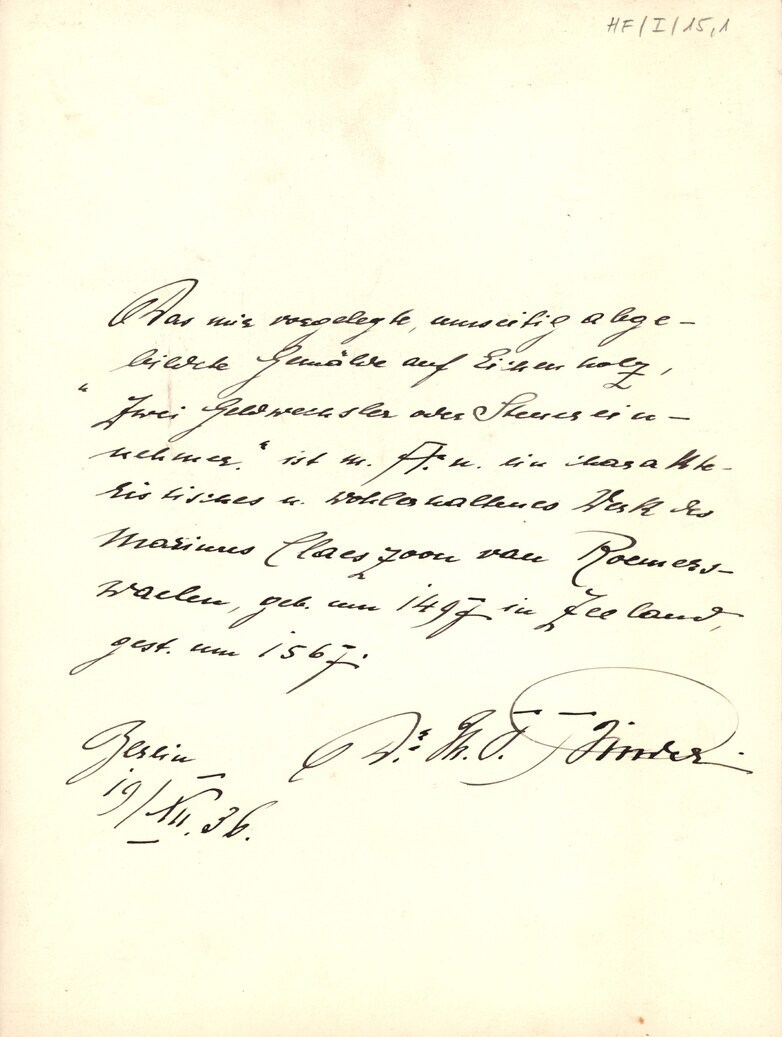 HF/I/15,1
Das mir vorgelegte, umseitig abge-
bildete Gemälde auf Eichenholz,
"Zwei Geldwechsler oder Steuerein-
nehmer." ist m. A. n. ein charakte-
ristisches u. wohlerhaltenes Werk des
Marinus Claeszoon van Roemers-
waelen, geb. um 1497 in Zeeland,
gest. um 1567.
Berlin
Dr. W. F.
19/XII.36.